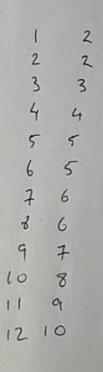 1 2
2 2
3 3
4 4
5 5
6 5
7 6
8 6
9 7
10 8
11 9
12 10